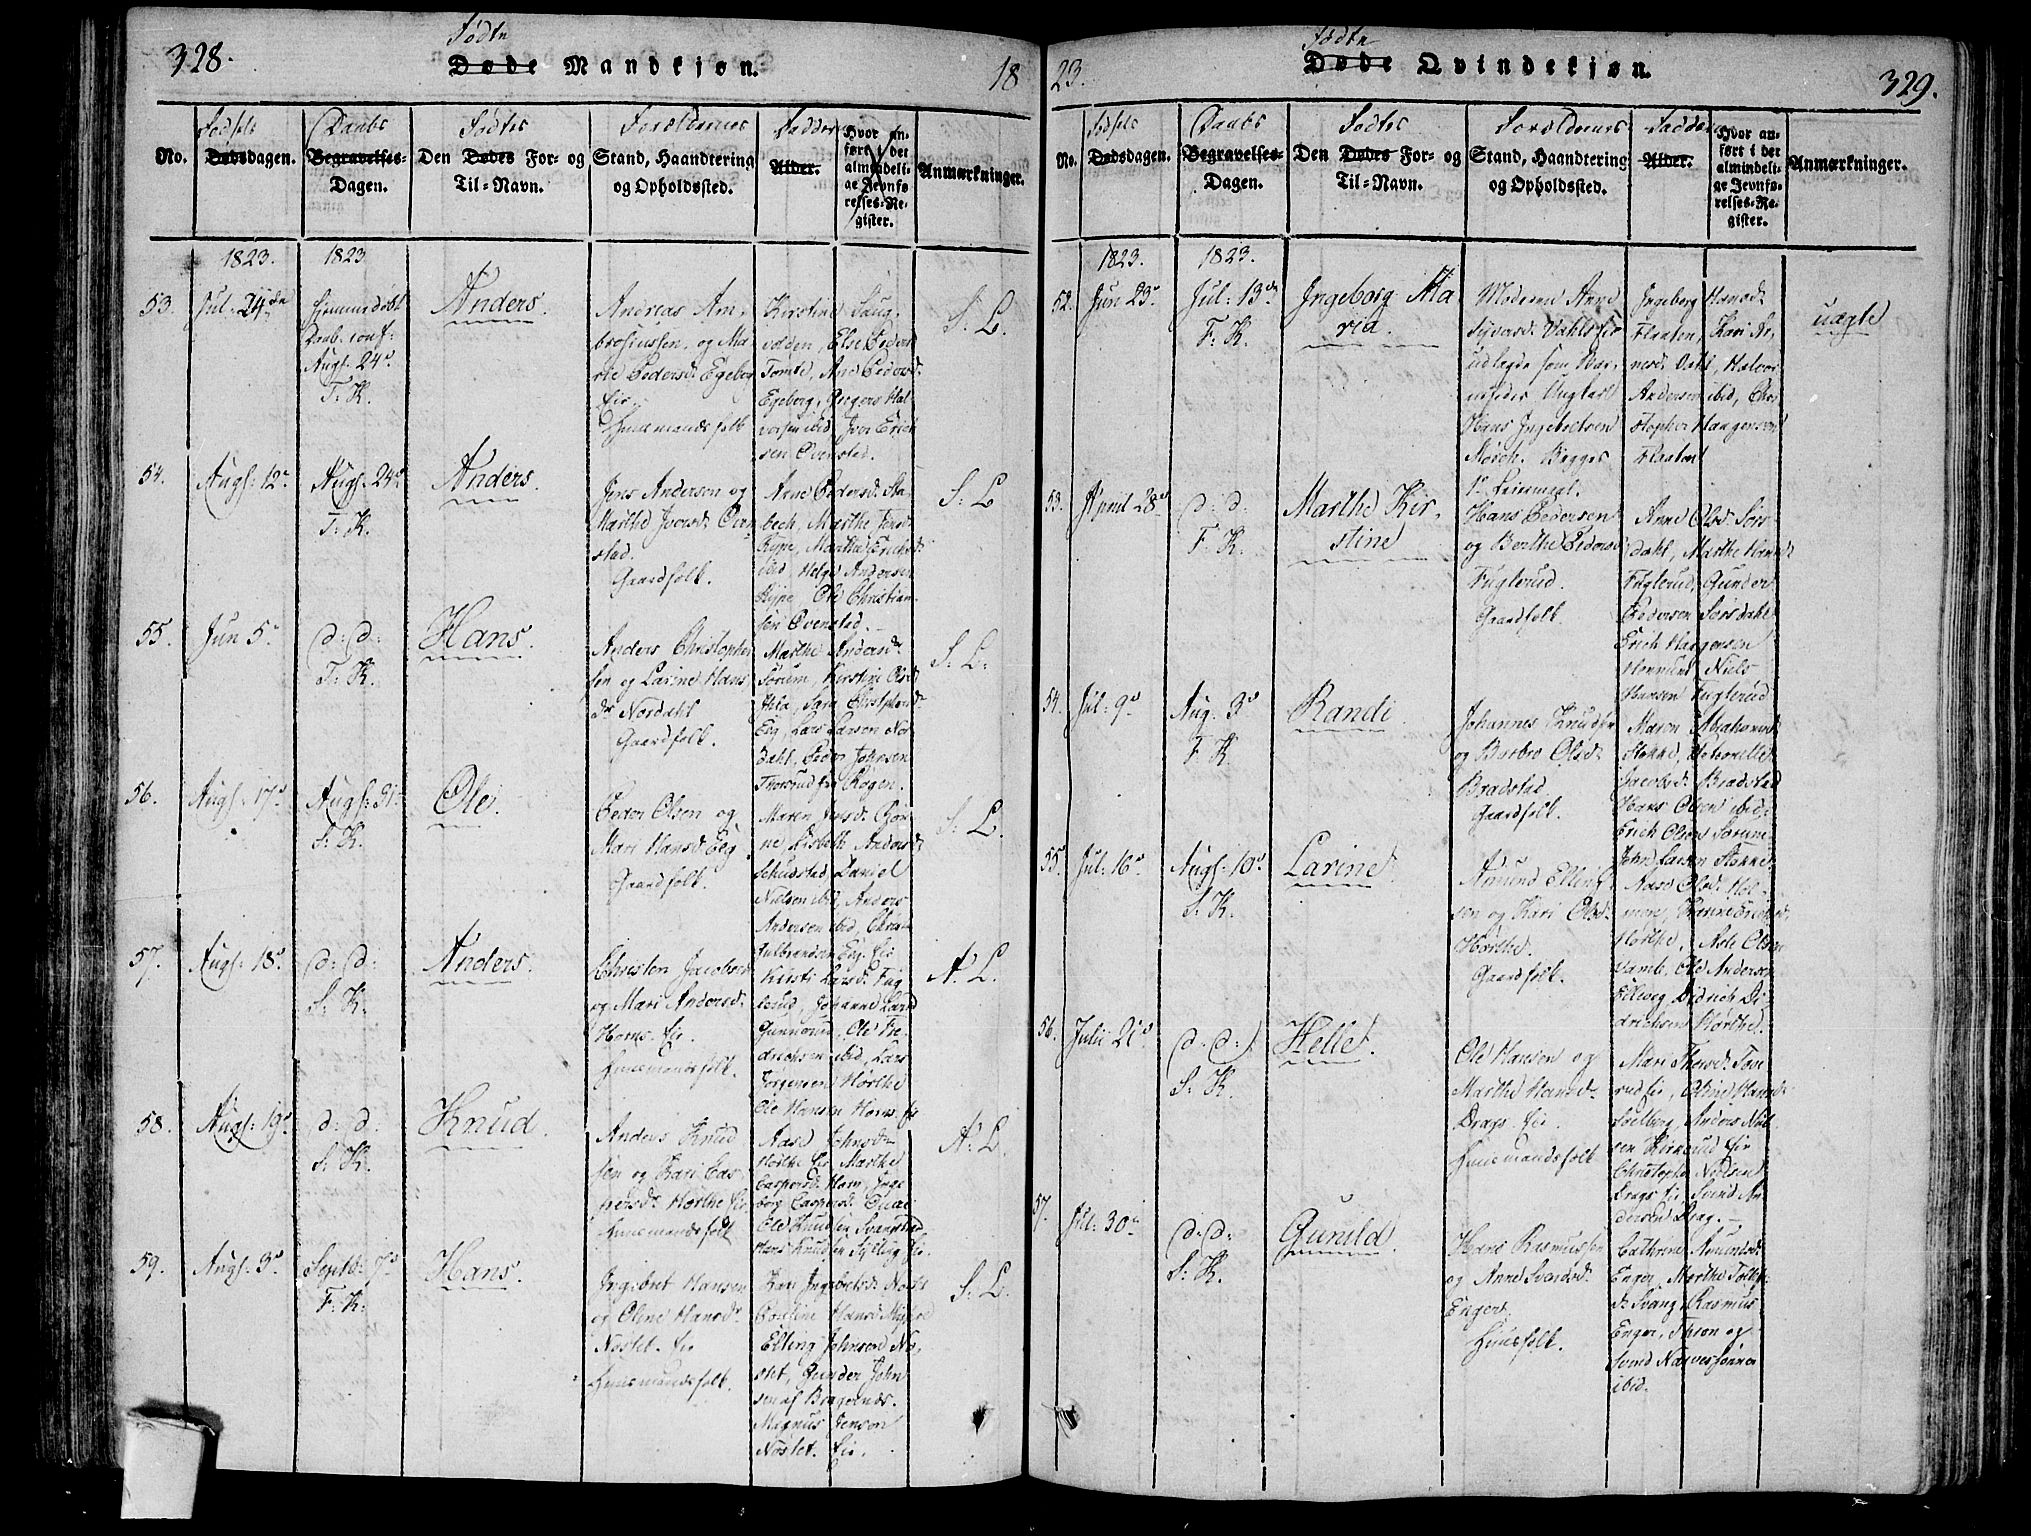 328.
Fødte
Døde Mandkjøn.
18
No.
Fødsels
Dødsdagen.
Daabs
Begravelses-
Dagen.
Fødtes
Den Dødes For- og
Til-Navn.
Forældrenes
Stand, Haandtering
og Opholdssted.
Faddere
Alder.
Hvor an-
ført i det
almindeli-
ge Jevnfø-
relses-Re-
gister.
Anmærkninger.
1823.
1823
53.
Jul: 24de
Hjemmedøbt
Daab. conf:
Augs. 24de
T: K.
Anders.
Andreas Am-
brosiussen, og Ma-
rie Pedersd. Egeber
Eie.
Huusmandsfolk
Kirstine Haug-
Else Peders
Tomte, Ane Pedersd.
Egeberg, Anders Hal-
vorsen ibid, Iver Erich
sen Ovenstad.
S: L.
54.
Augs: 12te
Augs: 24de
T: K.
Anders.
Jens Andersen og
Marthe Iversd. Oven
stad.
Gaardfolk.
Anne Pedersd. Sta-
bech, Marthe Jensd.
Type, Marthe Erichsd.
ibid, Helge Andersen
Type, Ole Christian-
sen Ovenstad.
S: L
55.
Jun 5te
d: d:
T: K.
Hans.
Anders Christopher
sen og Larine Hans
dr Nordahl
Gaardfolk.
Marthe Andersdr
Sørum, Kirstine Olsd.
Hila, Sara Christophersd.
Eeg, Lars Larsen No-
dahl, Peder Johnsen
Thorsrud fra Rogen.
S: L:
56.
Augs: 17de
Augs: 31.
S: K.
Ole.
Peder Olsen og
Mari Hansd Eeg
Gaardfolk.
Maren Jensd.
ne, Lisbeth Andersd.
Schustad, Daniel
Nielsen ibid, Anders
Andersen ibid, Chris-
Gulbrandsen Eeg. Eie
S: L.
57.
Augs: 18de
d: d:
S: K.
Anders.
Christen Jacobsen
og Mari Andersd.
Horns. Eie.
Huusmandsfolk.
Kirsti Larsd. Fug
lerud, Johanne Larsd
Gunnerud, Ole Fre-
drichsen ibid, Lars
Jørgensen Hørthe
Ole Hansen Horns. Eie
A: L.
58.
Augs: 19de
d: d:
S: K.
Knud.
Anders Knud
sen og Kari Cas-
persdr Hørthe Eie
Huusmandsfolk
Aase Johnsdr
Hørthe Eie, Marthe
Caspersd. Horn, Inge
borg Caspersd.
Ole Knudsen Svangstad
Hans Knudsen Sylling Eie.
A: L.
59.
Augs: 3de
Septb: 7de
F: K:
Hans.
Ingebret Hansen
og Oline Hansdr
Nøstet. Eie
Huusmandsfolk.
Kari Ingebretsd. Nøstet
Hansd.
Elling Johnsen Nø-
stet, Gunder John
sen af Bragernæs
Magnus Jensen
Nøstet. Eie.
S: L.
23.
Fødte
Døde Qvindekjøn.
329.
No.
Fødsels
Dødsdagen.
Daabs
Begravelses-
Dagen.
Fødtes
Den Dødes For- og
Til-Navn.
Forældrenes
Stand, Haandtering
og Opholdssted.
Faddere
Alder.
Hvor an-
ført i det
almindeli-
ge Jevnfø-
relses-Re-
gister.
Anmærkninger.
1823.
1823.
52.
Jun 23de
Jul: 13de
F: K.
Ingeborg Ma-
ria.
Moderen Anne
Syversd. Dahls Eie
udlagde som Bar-
nefader Ungkarl
Hans Ingebretsen
Mørch. Begges
1te Leiermaal.
Ingeborg Hansd.
Flaaten, Kari Ar-
nesd. Dahl, Halvor
Andersen ibid, Chri-
stopher Haagensen
Flaaten
uægte
53.
April 28de
d: d:
F: K.
Marthe Kir-
stine
Hans Pedersen
og Berthe Pedersd
Fuglerud.
Gaardfolk.
Anne Olsd. Sørs-
dahl, Marthe
Fuglerud, Gunder
Pedersen Sørsdahl
Erich Haagensen
Niels
Hansen Fuglerud
54.
Jul: 9de
Aug: 3de
F: K.
Randi.
Johannes Knudsen
og Berbro Olsd.
Bradstad
Gaardfolk.
Maren Abrahamsd.
Stokke, Petronelle
Jacobsd. Bradstad
Hans Olsen ibid:
Erich Olsen Sørum
John Larsen Stokke.
55.
Jul: 16de
Augs: 10de
S: K.
Larine.
Amund Elling-
sen og Kari Olsd.
Hørthe.
Gaardfolk.
Aase Olsd. Hol-
men, Karine Erichsd.
Hørthe, Asle Olsen
Vamb, Ole Andersen
Ellevog, Didrich Di-
drichsen Hørthe.
56.
Julii 21de
d: d:
S: K.
Helle.
Ole Hansen og
Marthe Hansdr
Drags. Eie.
Huusmandsfolk
Mari Thorsd. Tove
rud Eie, Oline Hansd.
Solberg, Anders Niel-
sen Kirkerud Eie
Christopher Nielsen
Drags Eie, Svend An-
dersen Drag.
57.
Jul: 30te
d: d:
S: K.
Gunild.
Hans Rasmussen
og Anne Svendsd.
Enger.
Huusfolk.
Cathrine Amundsd.
Enger, Marthe
dr Svang, Rasmus
Enger, Thron og
Svend Narvesønner
ibid.